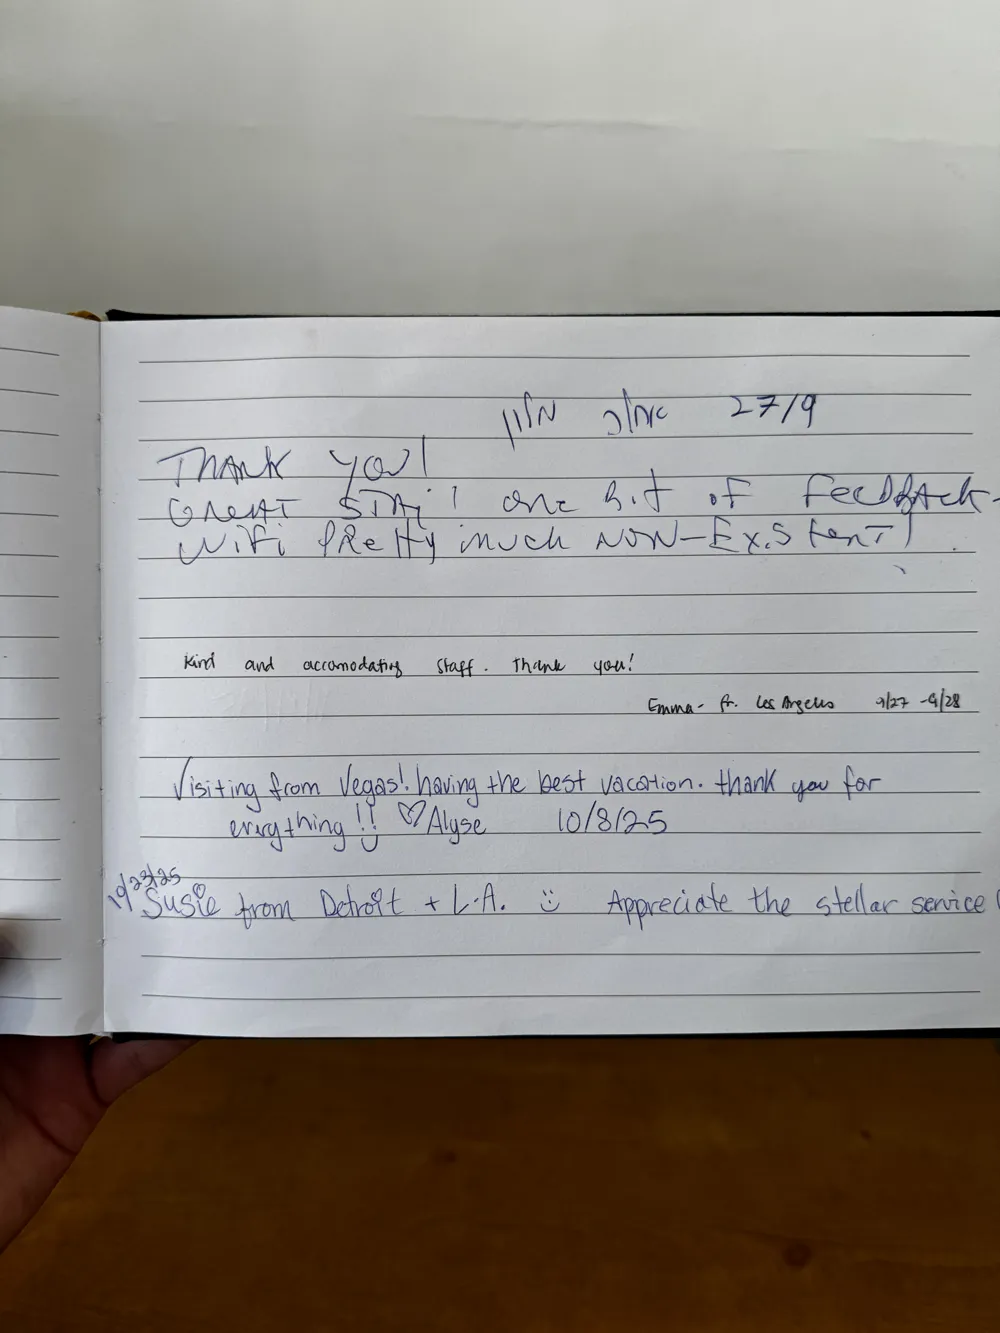 27/9
THANK YOU!
GREAT STAY! one bit of FeedBAck-
WiFi PRetty much NON-ExiStenT!
Kind and accomodating staff. Thank you!
Emma- fr. Los Angeles 9/27 -9/28
Visiting from Vegas! having the best vacation. thank you for
everything!! ♡Alyse 10/8/25
10/23/25
Susie from Detroit + L.A. Appreciate the stellar service